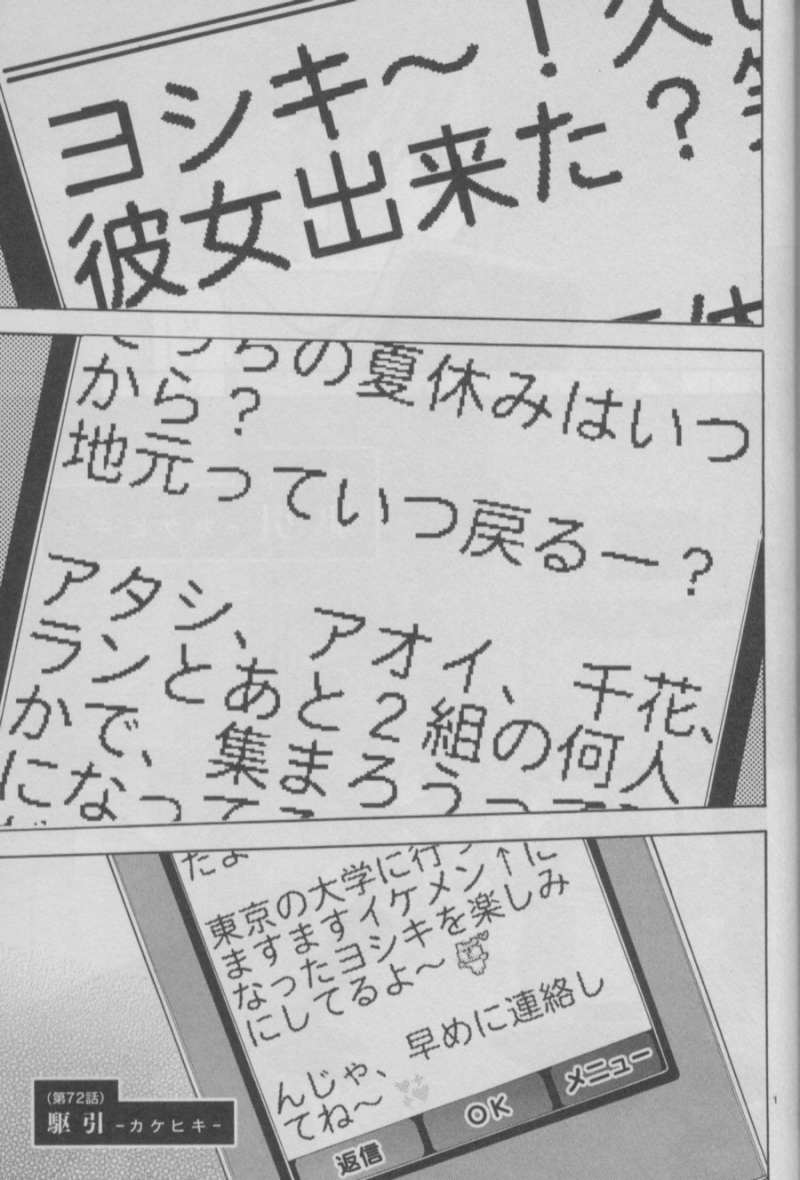 ヨシキ〜！久し
彼女出来た？
っちの夏休みはいつ
から？
地元っていつ戻るー？
アタシ、アオイ、千花、
ランとあと２組の何人
かで、集まろうって
になって
たよ
東京の大学に行っ
ますますイケメン↑に
なったヨシキを楽しみ
にしてるよ〜
んじゃ、早めに連絡し
てね〜
返信 OK メニュー
（第72話）
駆引 -カケヒキ-
1